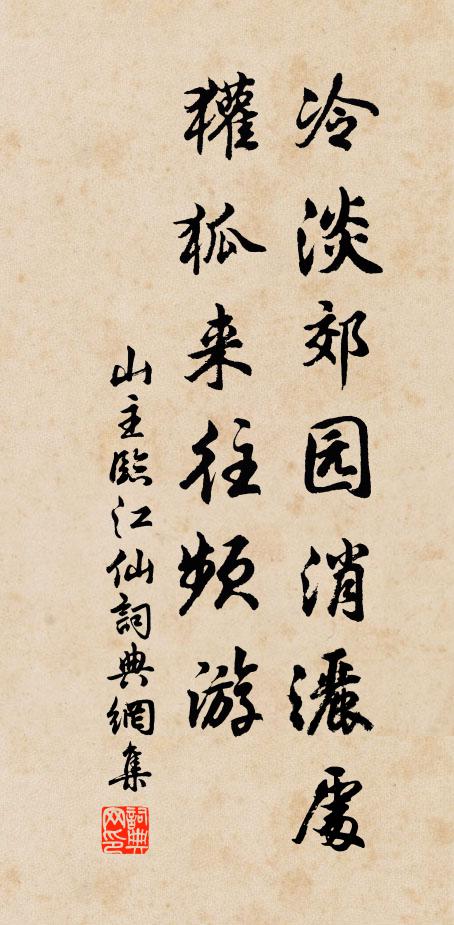 冷淡郊园消灑處
獾狐来往频游
山主臨江仙詞典網集
詞典网印